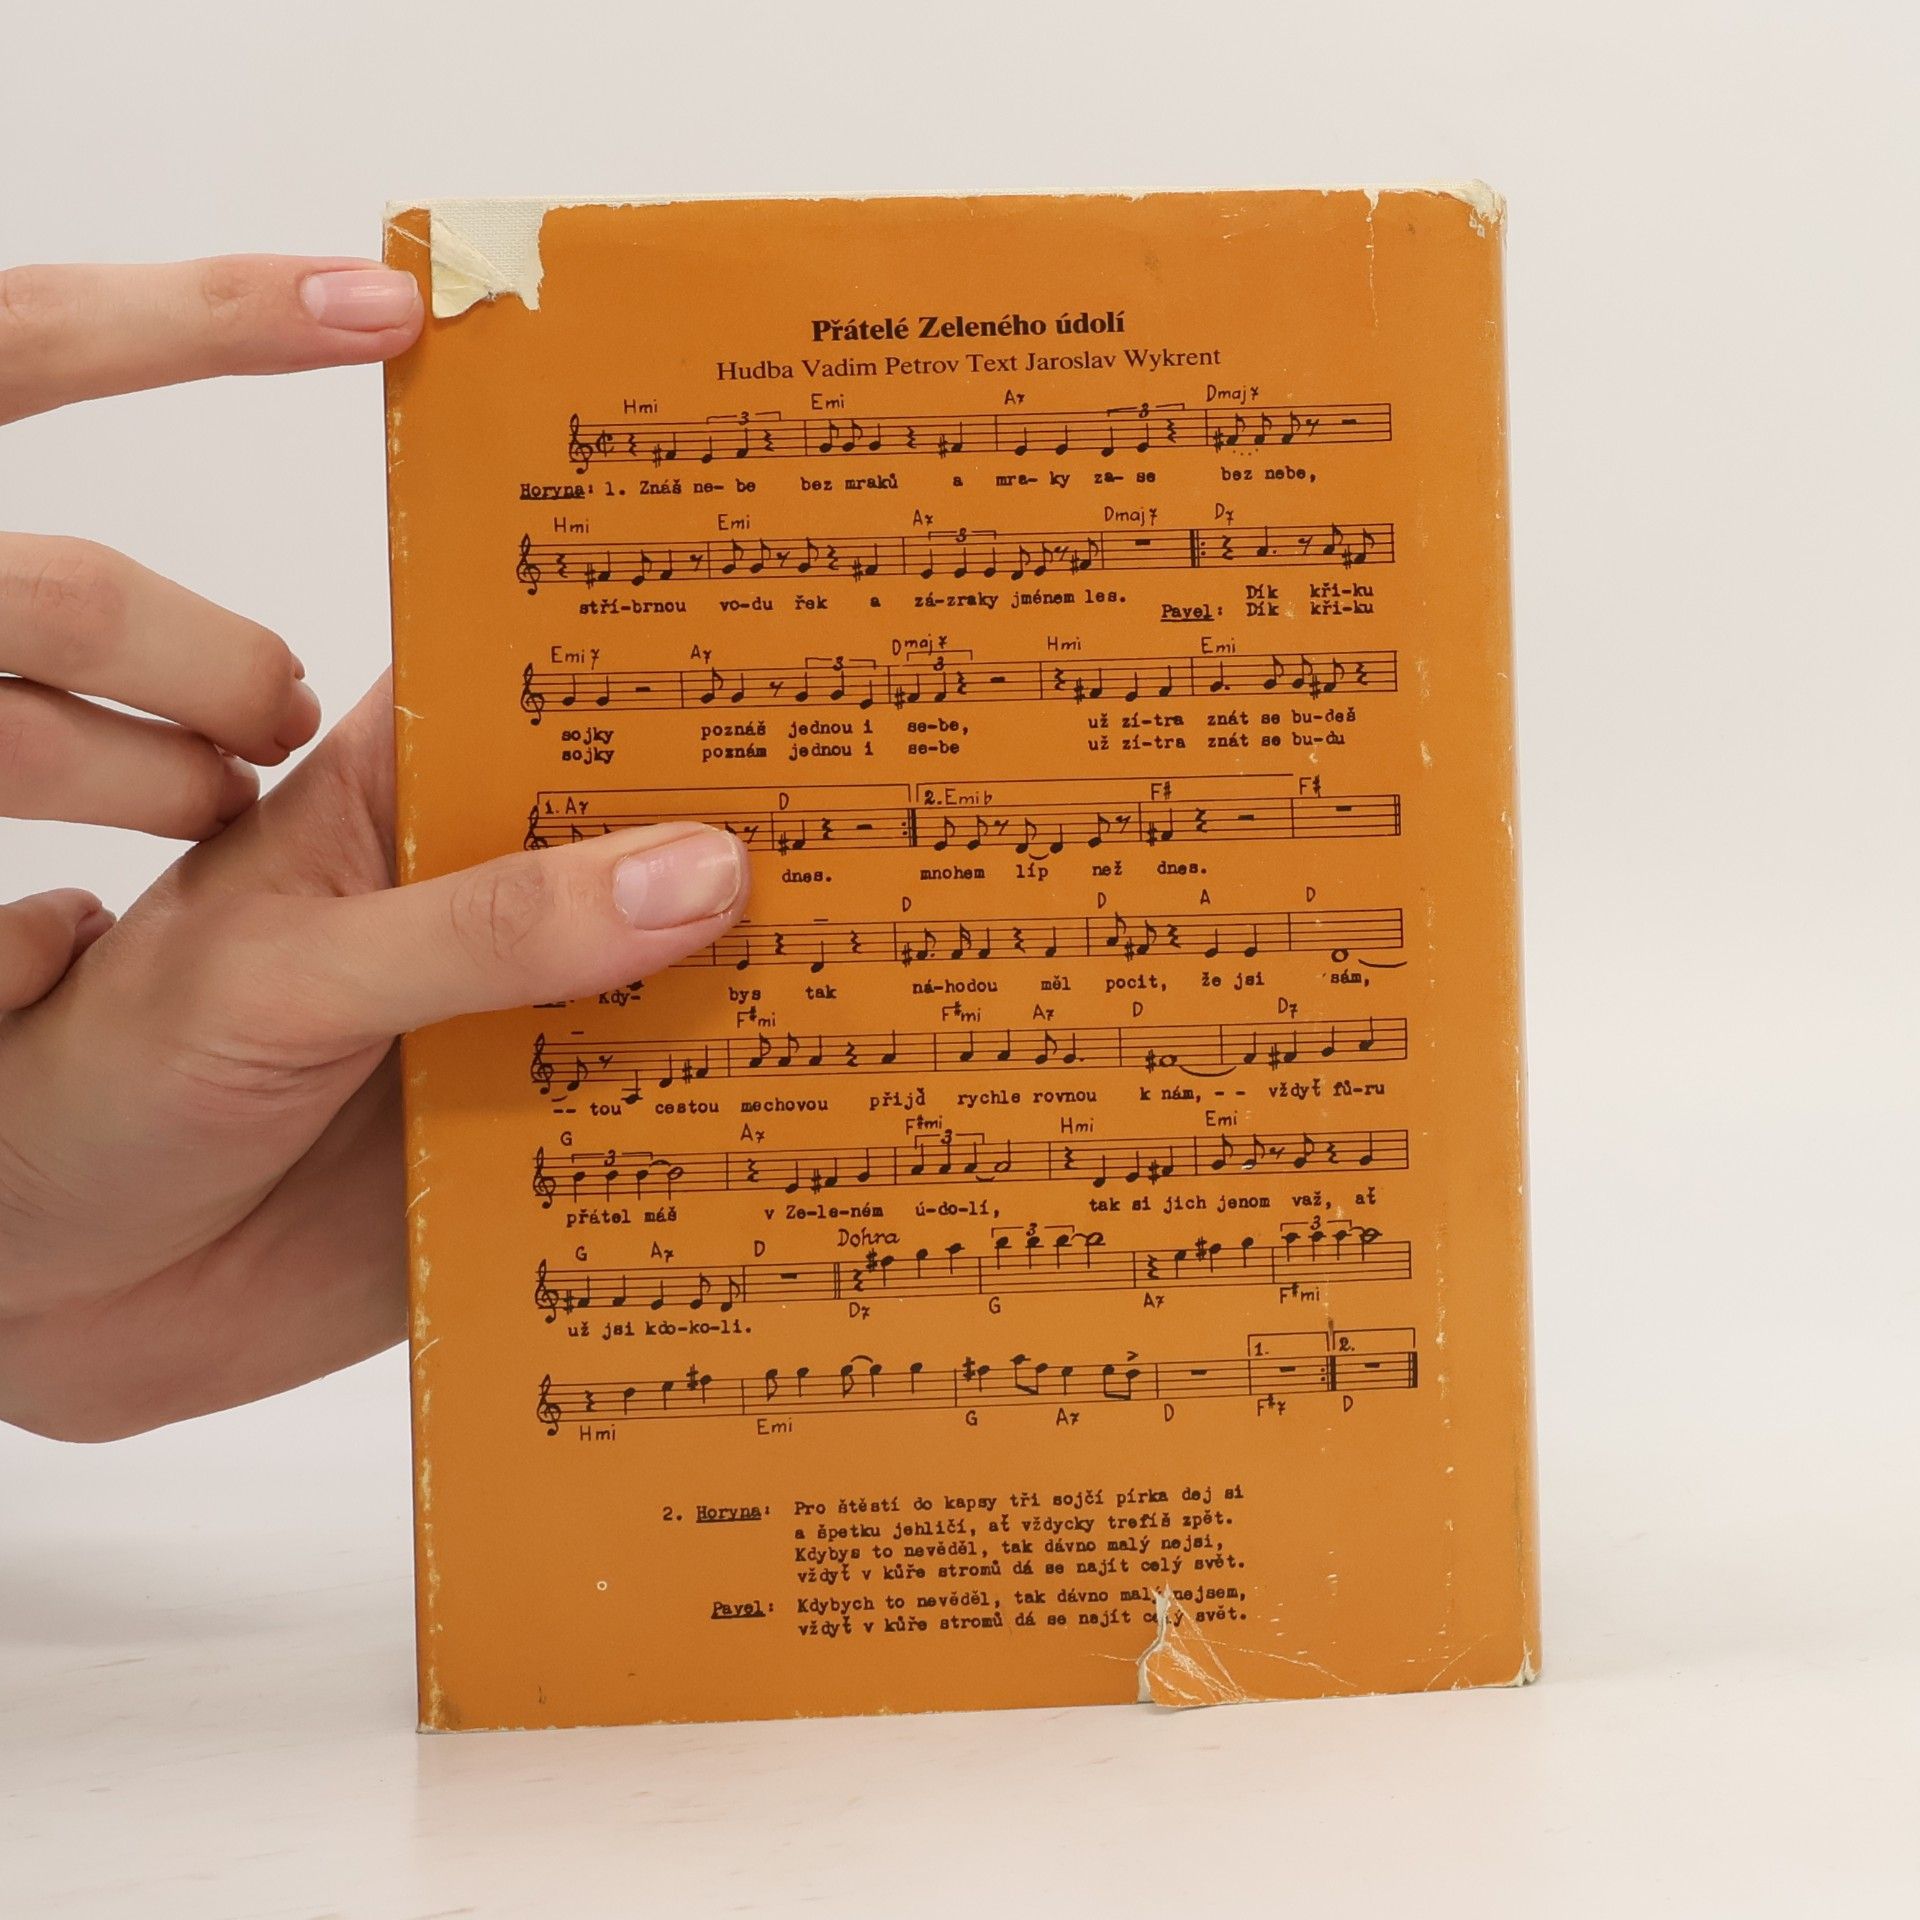 Přátelé Zeleného údolí
Hudba Vadim Petrov Text Jaroslav Wykrent
Hmi 3 Emi A7 3 Dmaj7
Horyna: 1. Znáš ne- be bez mraků a mra- ky za- se bez nebe,
Hmi Emi A7 3 Dmaj7 D7
stří-brnou vo-du řek a zá-zraky jménem les. Dík kři-ku
Pavel: Dík kři-ku
Emi7 A7 3 Dmaj7 3 Hmi Emi
sojky poznáš jednou i se-be, už zí-tra znát se bu-deš
sojky poznám jednou i se-be už zí-tra znát se bu-du
1. A7 D 2. Emi F# F#
dnes. mnohem líp než dnes.
D D A D
Kdy- bys tak ná-hodou měl pocit, že jsi sám,
F#mi F#mi A7 D D7
-- tou cestou mechovou přijď rychle rovnou k nám, - - vždyť fů-ru
G 3 A7 F#mi 3 Hmi Emi
přátel máš v Ze-le-ném ú-do-lí, tak si jich jenom važ, ať
G A7 D Dohra 3 3
D7 G A7 F#mi
už jsi kdo-ko-li.
1. 2.
Hmi Emi G A7 D F#7 D
2. Horyna: Pro štěstí do kapsy tři sojčí pírka dej si
a špetku jehličí, ať vždycky trefíš zpět.
Kdybys to nevěděl, tak dávno malý nejsi,
vždyť v kůře stromů dá se najít celý svět.
Pavel: Kdybych to nevěděl, tak dávno malý nejsem,
vždyť v kůře stromů dá se najít celý svět.